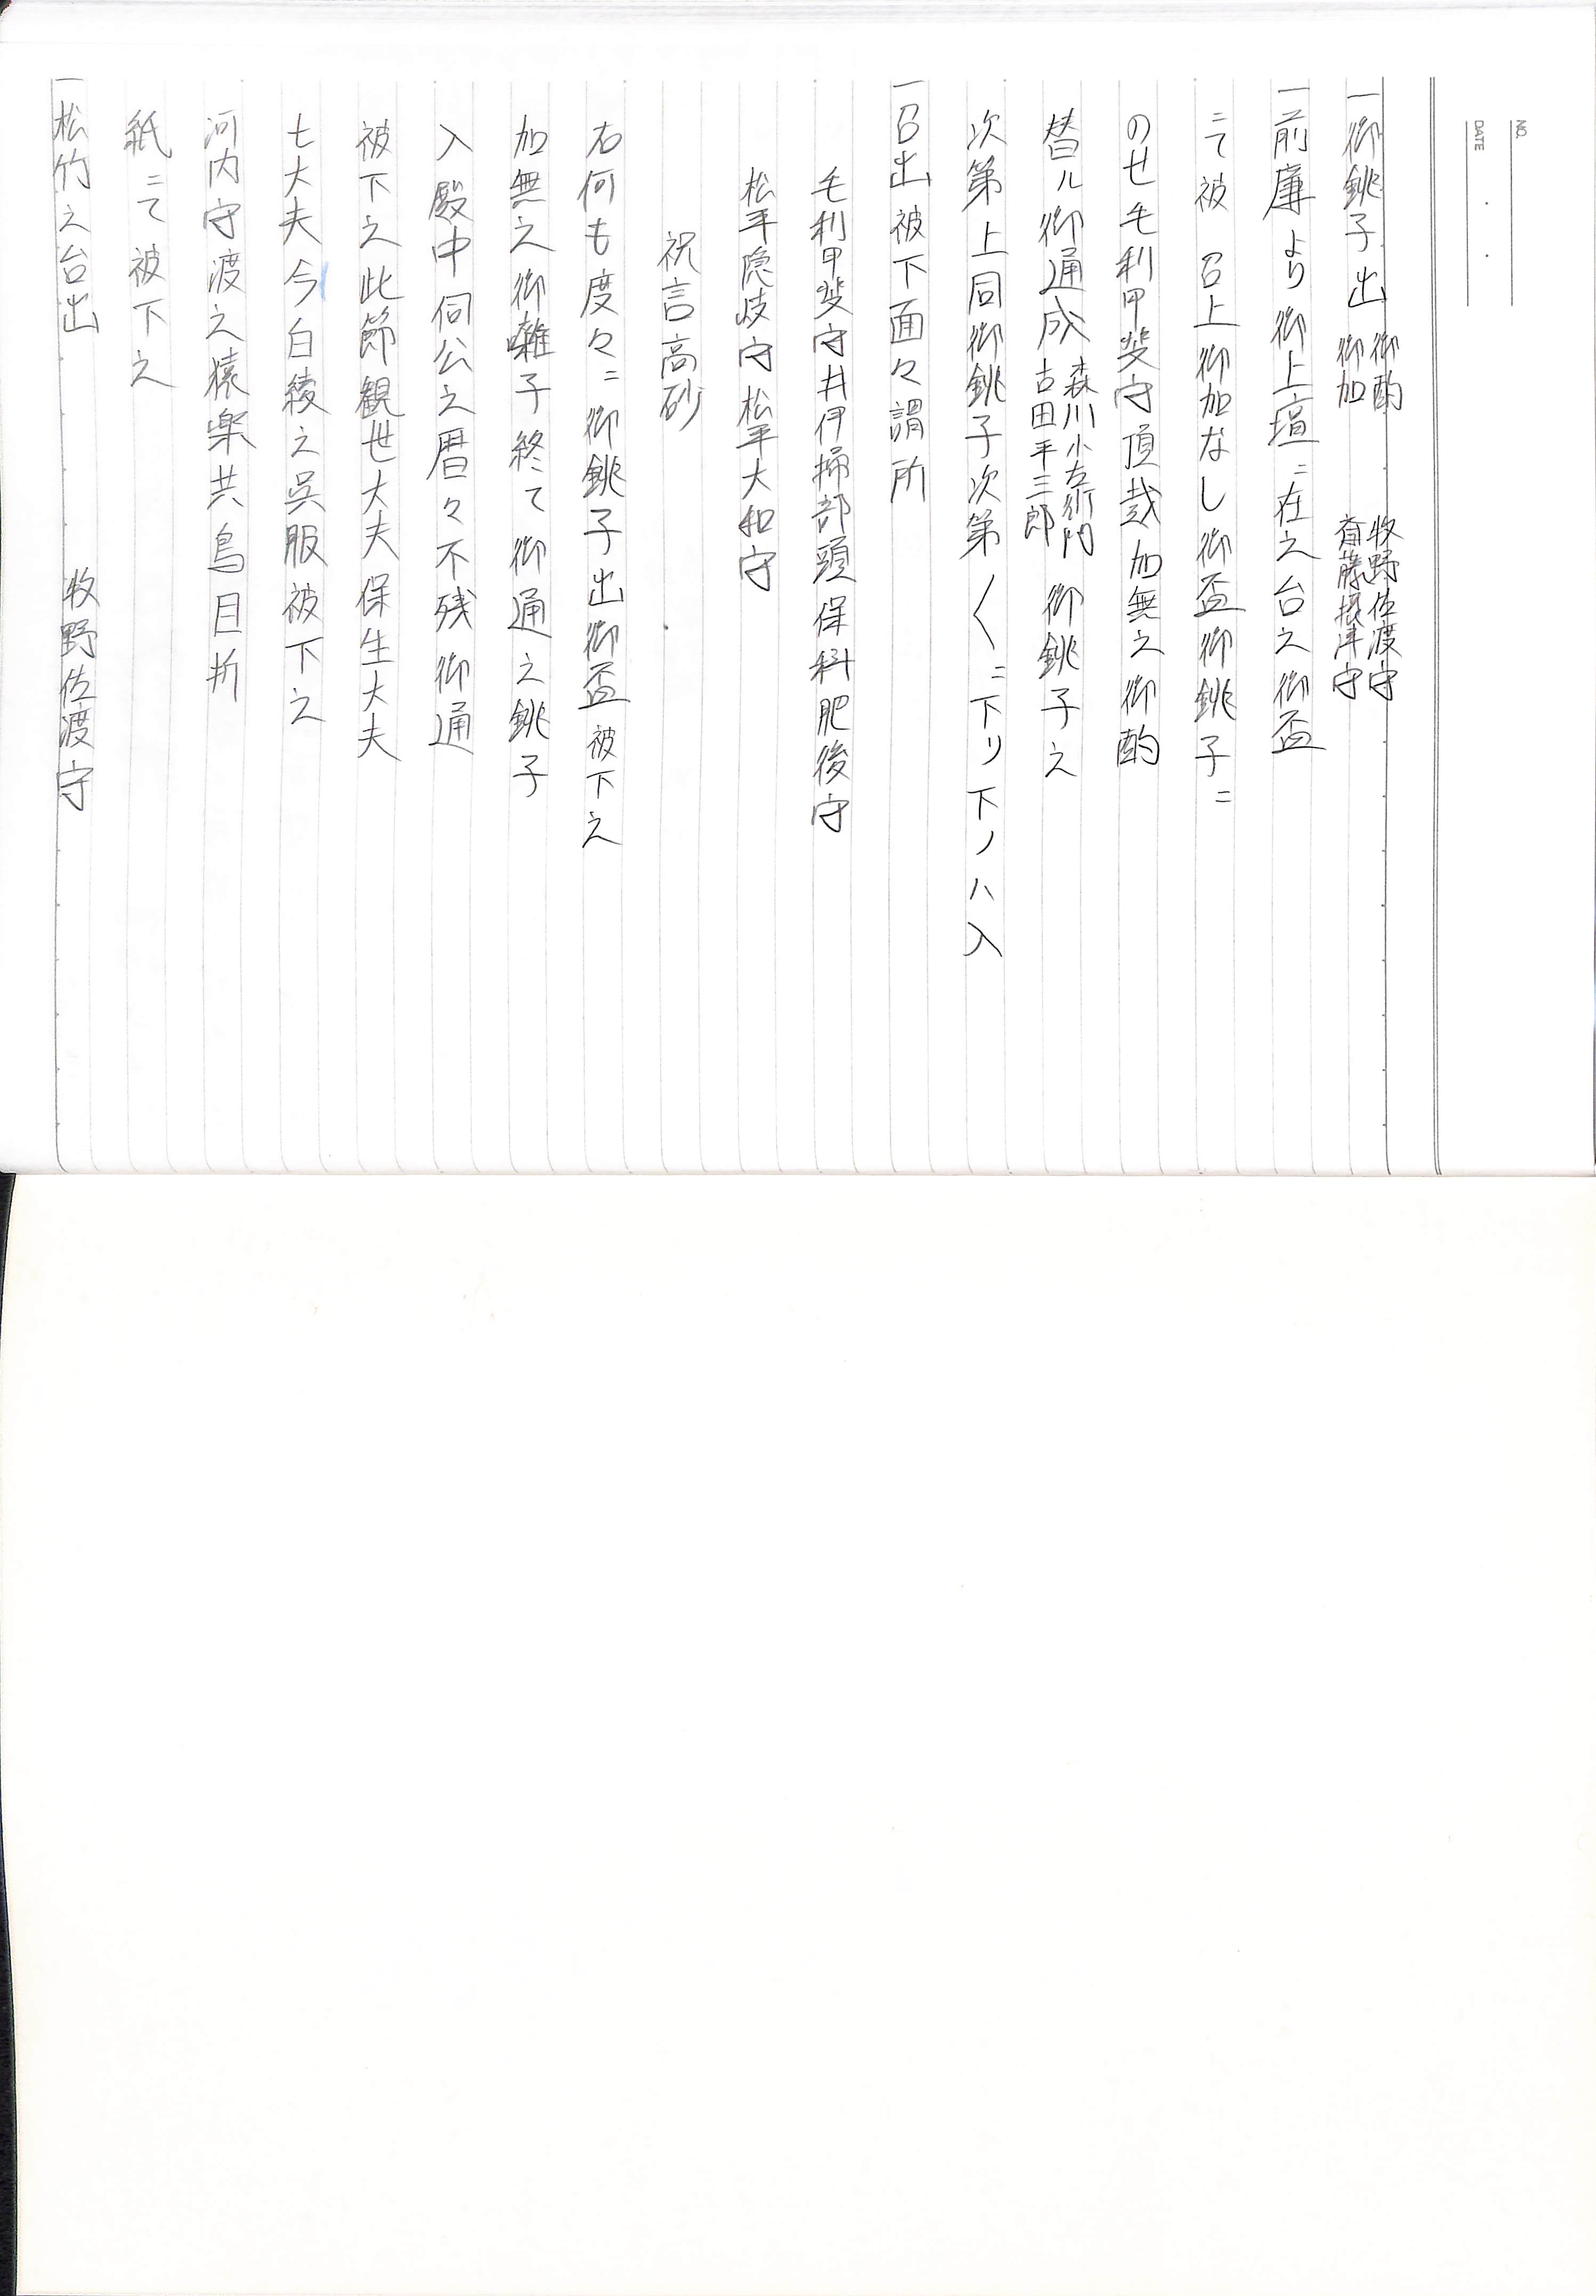 NO.
DATE
一御銚子出 御酌 牧野佐渡守
御加 斎藤摂津守
一前廉より御上壇ニ在之台之御盃
ニて被 召上御加なし御盃御銚子ニ
のせ毛利甲斐守頂戴加無之御酌
替ル御通成 森川小左衛門 御銚子之
古田平三郎
次第上同御銚子次第〱ニ下リ下ノハ入
一召出被下面々謂所
毛利甲斐守井伊掃部頭保科肥後守
松平隠岐守松平大和守
祝言高砂
右何も度々ニ御銚子出御盃被下之
加無之御囃子終て御通之銚子
入殿中伺公之暦々不残御通
被下之此節観世大夫保生大夫
七大夫今白綾之呉服被下之
河内守渡之猿楽共鳥目折
紙ニて被下之
一松竹之台出 牧野佐渡守